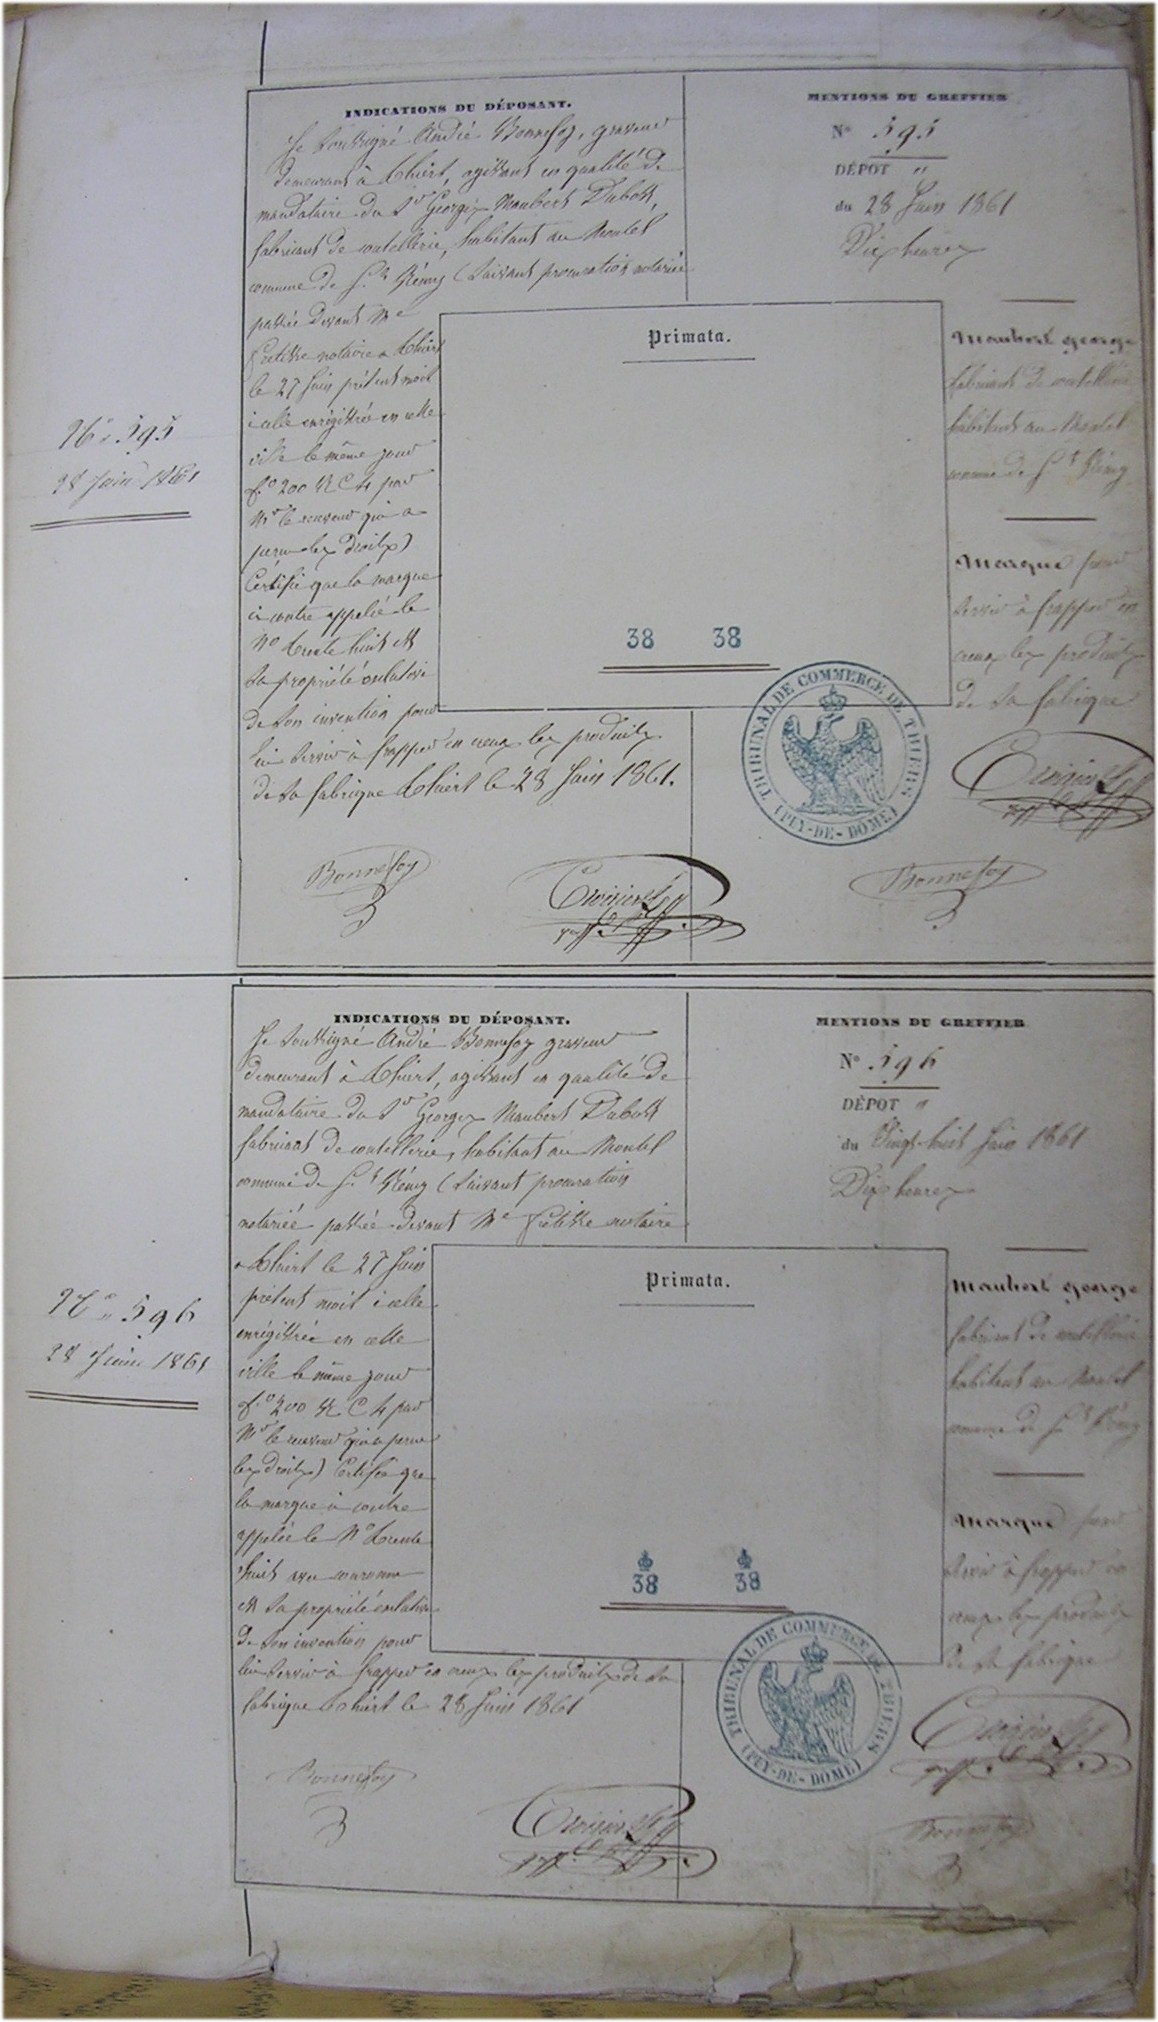 N° 595
28 Juin 1861
INDICATIONS DU DÉPOSANT.
Je soussigné André Bonnefoy, graveur
demeurant à Thiers, agissant en qualité de
mandataire du Sr Georges Maubert Dubost,
fabricant de coutellerie, habitant au Montel
commune de St Rémy (suivant procuration notariée
passée devant Me
notaire à Thiers
le 27 Juin présent mois
icelle enrégistrée en cette
ville le même jour
fo 200 Ro C 4 par
Mr le receveur qui a
perçu les droits)
Certifie que la marque
ci contre appelée le
No trente huit est
sa propriété exclusive
de son invention pour
lui servir à frapper en creux les produits
de sa fabrique Thiers le 28 Juin 1861.
Bonnefoy
MENTIONS DU GREFFIER
N° 595
DÉPOT
du 28 Juin 1861
Dix heures
Primata.
38 38
Maubert george
fabricant de coutellerie
habitant au Montel
commune de St Rémy
Marque pour
servir à frapper en
creux les produits
de sa fabrique
TRIBUNAL DE COMMERCE DE THIERS
(PUY-DE-DOME)
Bonnefoy
N° 596
28 Juin 1861
INDICATIONS DU DÉPOSANT.
Je soussigné André Bonnefoy graveur
demeurant à Thiers, agissant en qualité de
mandataire du Sr Georges Maubert Dubost
fabricant de coutellerie, habitant au Montel
commune de St Rémy (suivant procuration
notariée passée devant Me notaire
à Thiers le 27 Juin
présent mois icelle
enrégistrée en cette
ville le même jour
fo 200 Ro C 4 par
Mr le receveur qui a perçu
les droits) Certifie que
la marque ci contre
appelée le No trente
huit avec couronne
est sa propriété exclusive
de son invention pour
lui servir à frapper en creux les produits de sa
fabrique Thiers le 28 Juin 1861
Bonnefoy
MENTIONS DU GREFFIER
N° 596
DÉPOT
du Vingt huit Juin 1861
Dix heures
Primata.
38 38
Maubert george
fabricant de coutellerie
habitant au Montel
commune de St Rémy
Marque pour
servir à frapper en
creux les produits
de sa fabrique
TRIBUNAL DE COMMERCE DE THIERS
(PUY-DE-DOME)
Bonnefoy